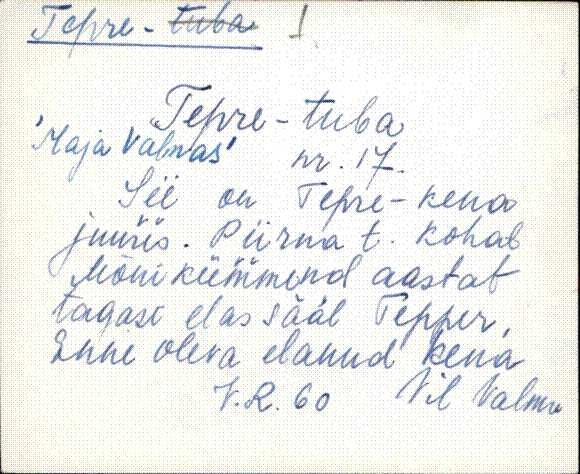 Tepre-tuba 1
Tepre-tuba
'Maja Valmas' nr. 17.
Sii on Tepre-kena
juuris. Piirna t. kohal
Mõni kümmend aastat
tagasi elas sääl Tepper,
Enne oleva elanud kena
V.R. 60 Vil Valmu